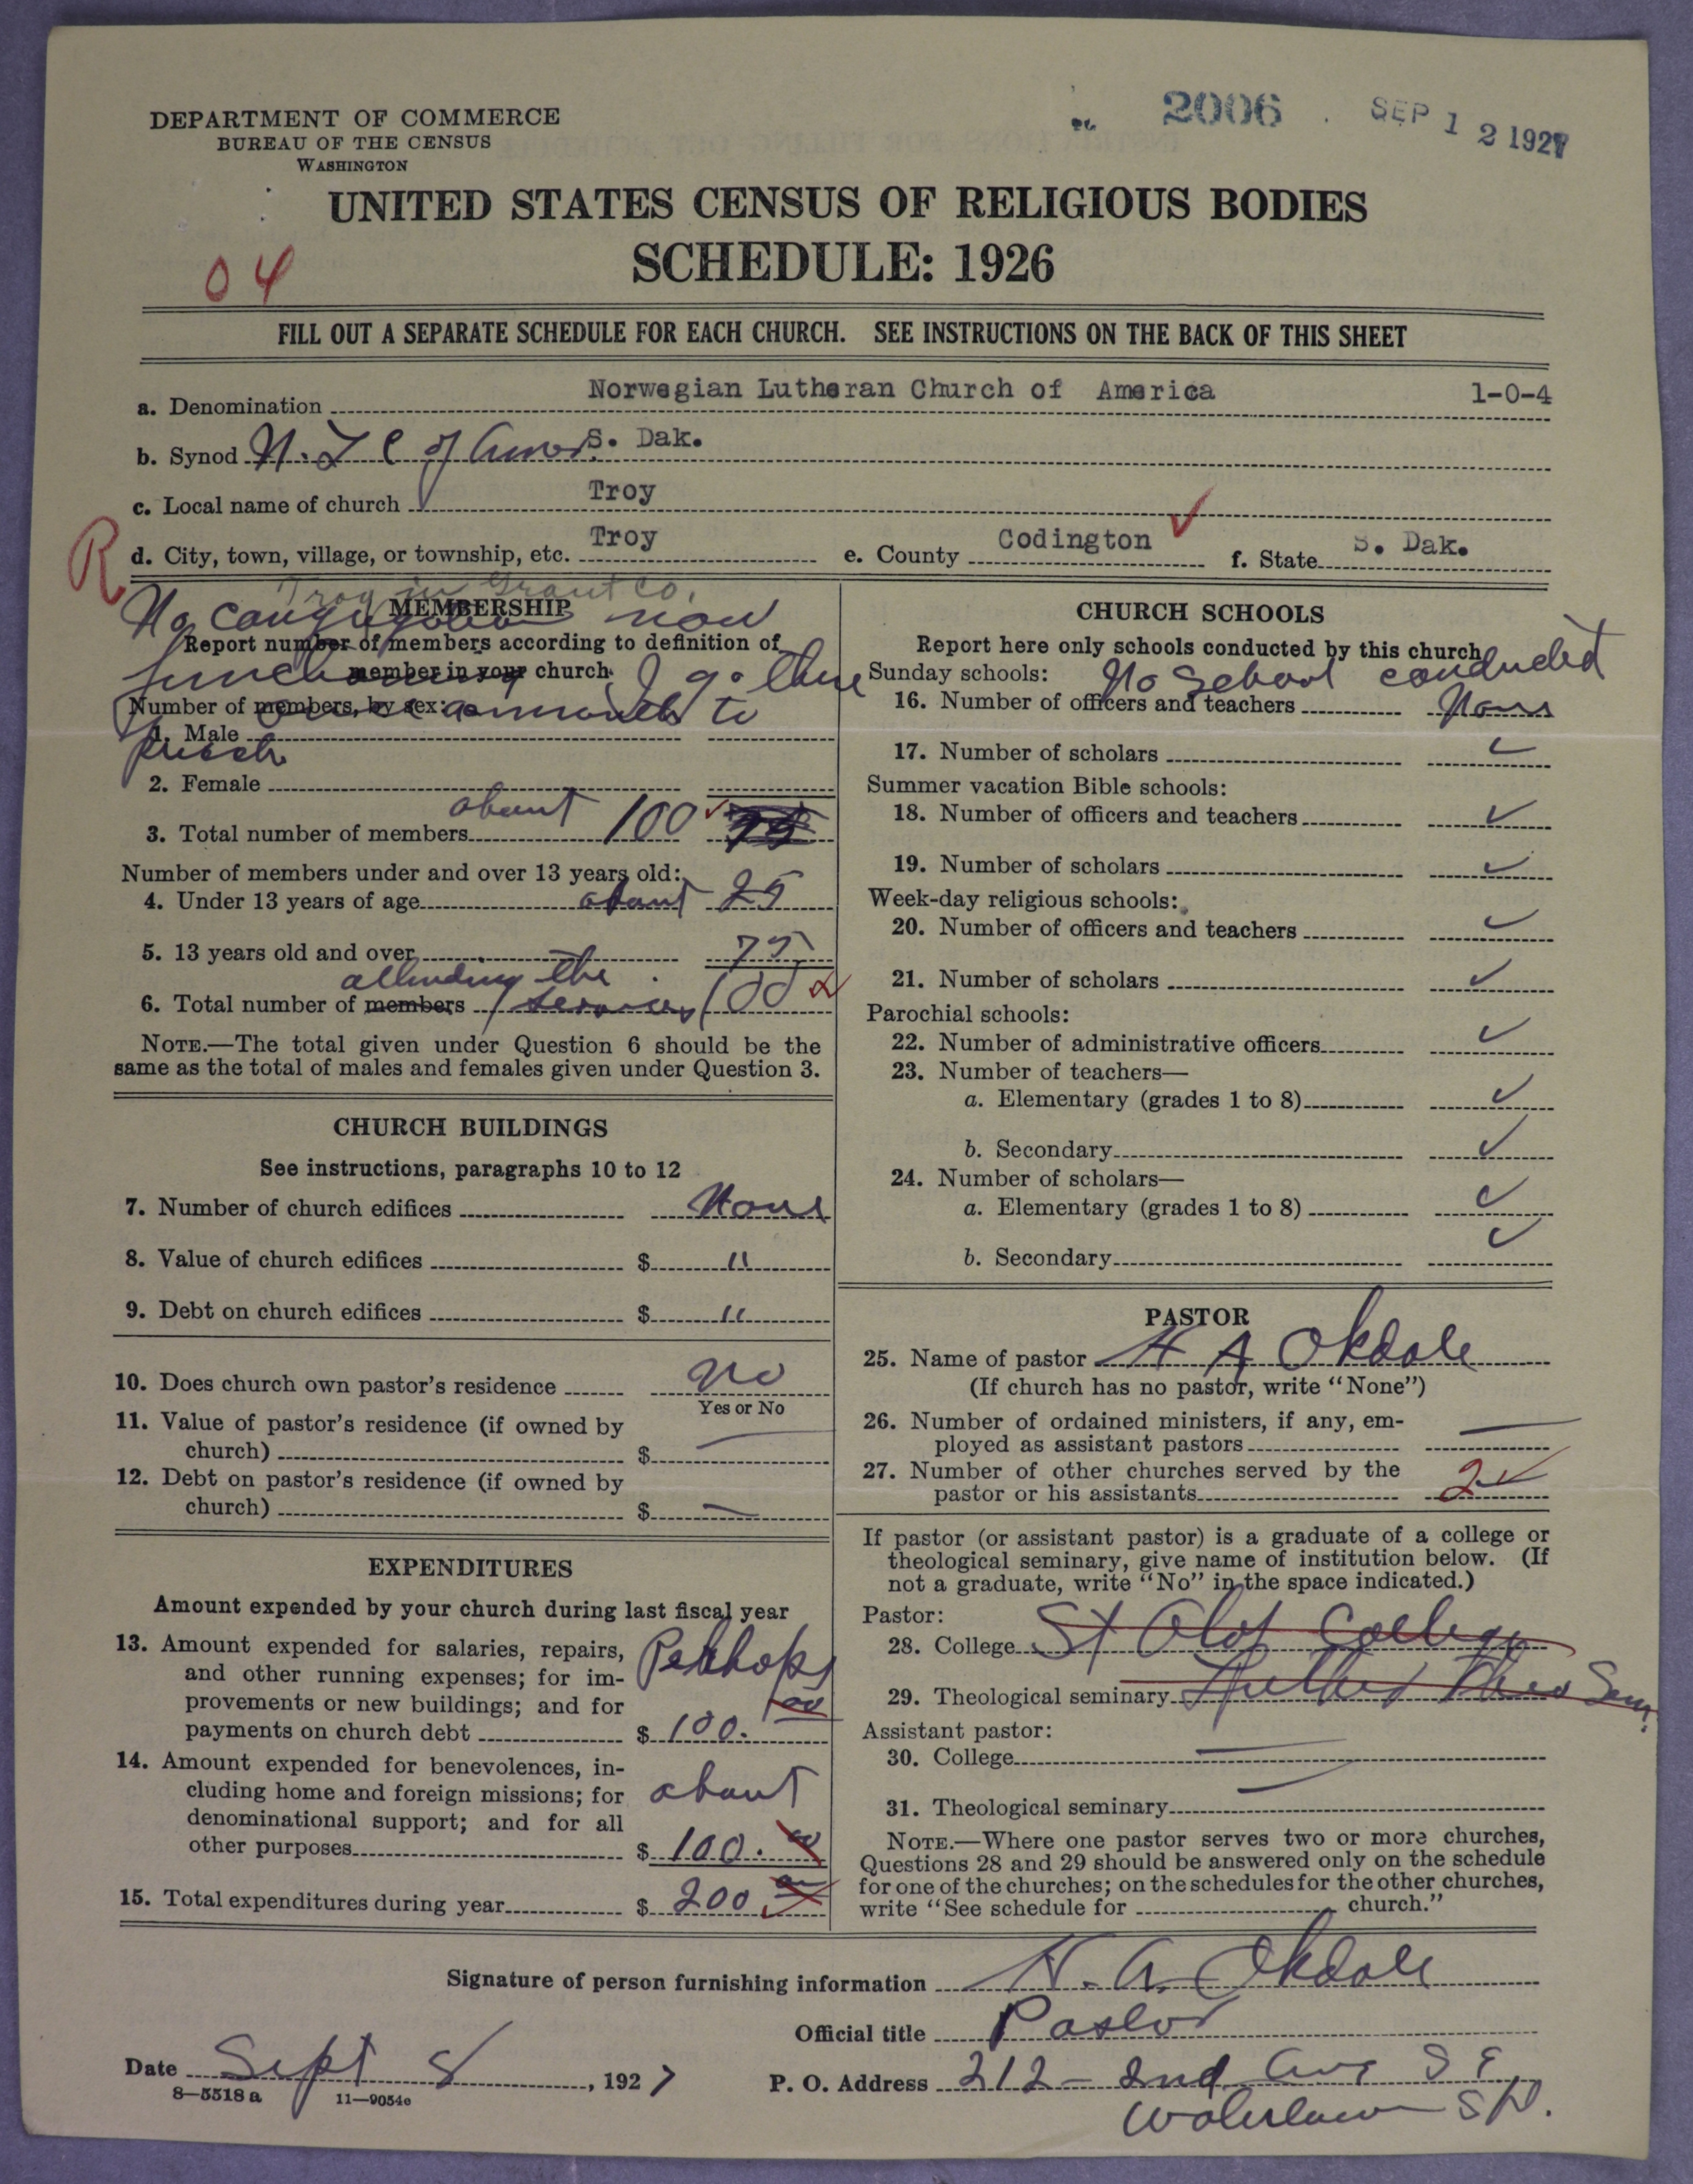 DEPARTMENT OF COMMERCE
BUREAU OF THE CENSUS
WASHINGTON
2006
SEP 12 1927
UNITED STATES CENSUS OF RELIGIOUS BODIES
SCHEDULE: 1926
04
FILL OUT A SEPARATE SCHEDULE FOR EACH CHURCH. SEE INSTRUCTIONS ON THE BACK OF THIS SHEET
a. Denomination Norwegian Lutheran Church of America 1-0-4
b. Synod N. L C of Amer S. Dak.
c. Local name of church Troy
R
d. City, town, village, or township, etc. Troy e. County Codington f. State S. Dak.
Troy in Grant Co.
MEMBERSHIP
No congregation now
Report number of members according to definition of
member in your church. I go there
Number of members, by sex: once a month to
1. Male
preach
2. Female
3. Total number of members about 100 75
Number of members under and over 13 years old:
4. Under 13 years of age about 25
5. 13 years old and over 75
attending the
6. Total number of members services 100
NOTE.—The total given under Question 6 should be the
same as the total of males and females given under Question 3.
CHURCH BUILDINGS
See instructions, paragraphs 10 to 12
7. Number of church edifices None
8. Value of church edifices $ "
9. Debt on church edifices $ "
10. Does church own pastor's residence no
Yes or No
11. Value of pastor's residence (if owned by
church) $ —
12. Debt on pastor's residence (if owned by
church) $ —
EXPENDITURES
Amount expended by your church during last fiscal year
13. Amount expended for salaries, repairs,
and other running expenses; for im-
provements or new buildings; and for
payments on church debt Perhaps $ 100.00
14. Amount expended for benevolences, in-
cluding home and foreign missions; for
denominational support; and for all
other purposes about $ 100.00
15. Total expenditures during year $ 200 00
CHURCH SCHOOLS
Report here only schools conducted by this church
Sunday schools: No School conducted
16. Number of officers and teachers None
17. Number of scholars ✓
Summer vacation Bible schools:
18. Number of officers and teachers ✓
19. Number of scholars ✓
Week-day religious schools:
20. Number of officers and teachers ✓
21. Number of scholars ✓
Parochial schools:
22. Number of administrative officers ✓
23. Number of teachers—
a. Elementary (grades 1 to 8) ✓
b. Secondary ✓
24. Number of scholars—
a. Elementary (grades 1 to 8) ✓
b. Secondary ✓
PASTOR
25. Name of pastor H A Okdale
(If church has no pastor, write "None")
26. Number of ordained ministers, if any, em-
ployed as assistant pastors —
27. Number of other churches served by the
pastor or his assistants 2 ✓
If pastor (or assistant pastor) is a graduate of a college or
theological seminary, give name of institution below. (If
not a graduate, write "No" in the space indicated.)
Pastor:
28. College St Olof College
29. Theological seminary Luther Theo Sem.
Assistant pastor:
30. College —
31. Theological seminary —
NOTE.—Where one pastor serves two or more churches,
Questions 28 and 29 should be answered only on the schedule
for one of the churches; on the schedules for the other churches,
write "See schedule for church."
Signature of person furnishing information H. A. Okdale
Official title Pastor
Date Sept 8, 1927
P. O. Address 212 - 2nd Ave S E
Watertown S D.
8—5518 a 11—9054e